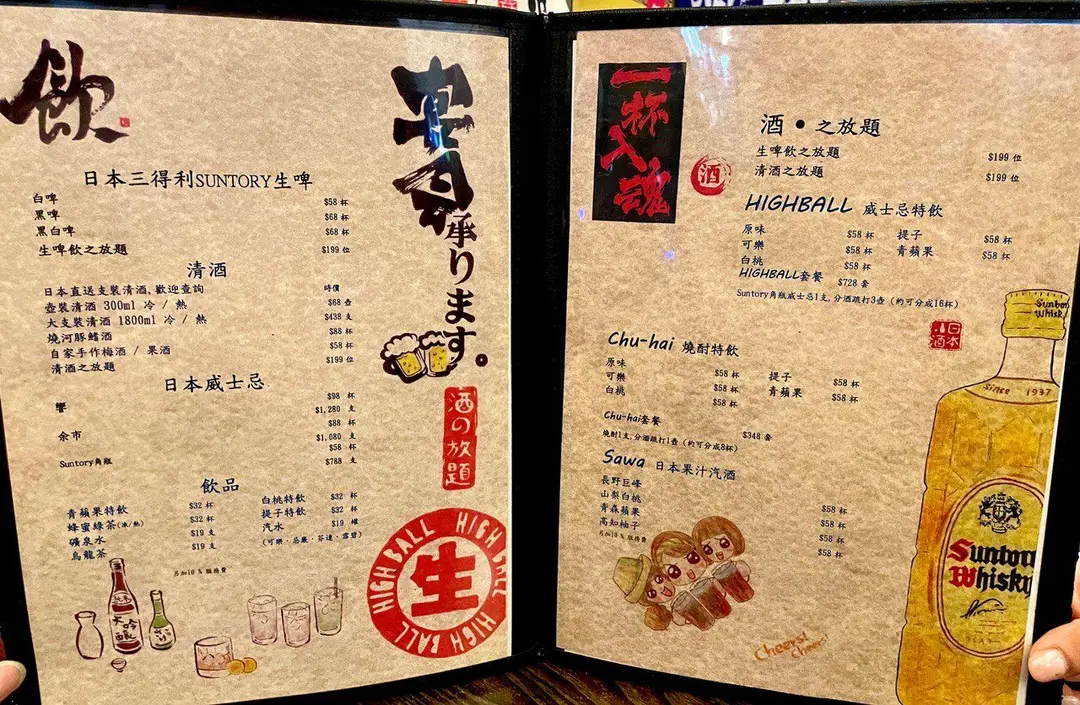 飲
日本三得利SUNTORY生啤
白啤 $58 杯
黑啤 $68 杯
黑白啤 $68 杯
生啤飲之放題 $199 位
清酒
日本直送支裝清酒,歡迎查詢 時價
壺裝清酒 300ml 冷 / 熱 $68 壺
大支裝清酒 1800ml 冷 / 熱 $438 支
燒河豚鰭酒 $88 杯
自家手作梅酒 / 果酒 $58 杯
清酒之放題 $199 位
日本威士忌
響 $98 杯
$1,280 支
余市 $88 杯
$1,080 支
Suntory角瓶 $58 杯
$788 支
飲品
青蘋果特飲 $32 杯
蜂蜜綠茶(凍/熱) $32 杯
礦泉水 $19 支
烏龍茶 $19 支
白桃特飲 $32 杯
提子特飲 $32 杯
汽水 $19 罐
(可樂、忌廉、芬達、雪碧)
另加10％服務費
大吟釀
宴承ります。
酒の放題
HIGH BALL HIGH BALL HIGH BALL
生
一杯入魂
酒
酒•之放題
生啤飲之放題 $199 位
清酒之放題 $199 位
HIGHBALL 威士忌特飲
原味 $58 杯
可樂 $58 杯
白桃 $58 杯
提子 $58 杯
青蘋果 $58 杯
HIGHBALL套餐 $728 套
Suntory角瓶威士忌1支,分酒疏打3壺 (約可分成16杯)
Chu-hai 燒酎特飲
原味 $58 杯
可樂 $58 杯
白桃 $58 杯
提子 $58 杯
青蘋果 $58 杯
Chu-hai套餐 $348 套
燒酎1支,分酒疏打1壺 (約可分成8杯)
Sawa 日本果汁汽酒
長野巨峰 $58 杯
山梨白桃 $58 杯
青森蘋果 $58 杯
高知柚子 $58 杯
另加10％服務費
Cheers!
Cheers!
日本酒
Suntory
Whisk
Since 1937
Suntory
Whisky